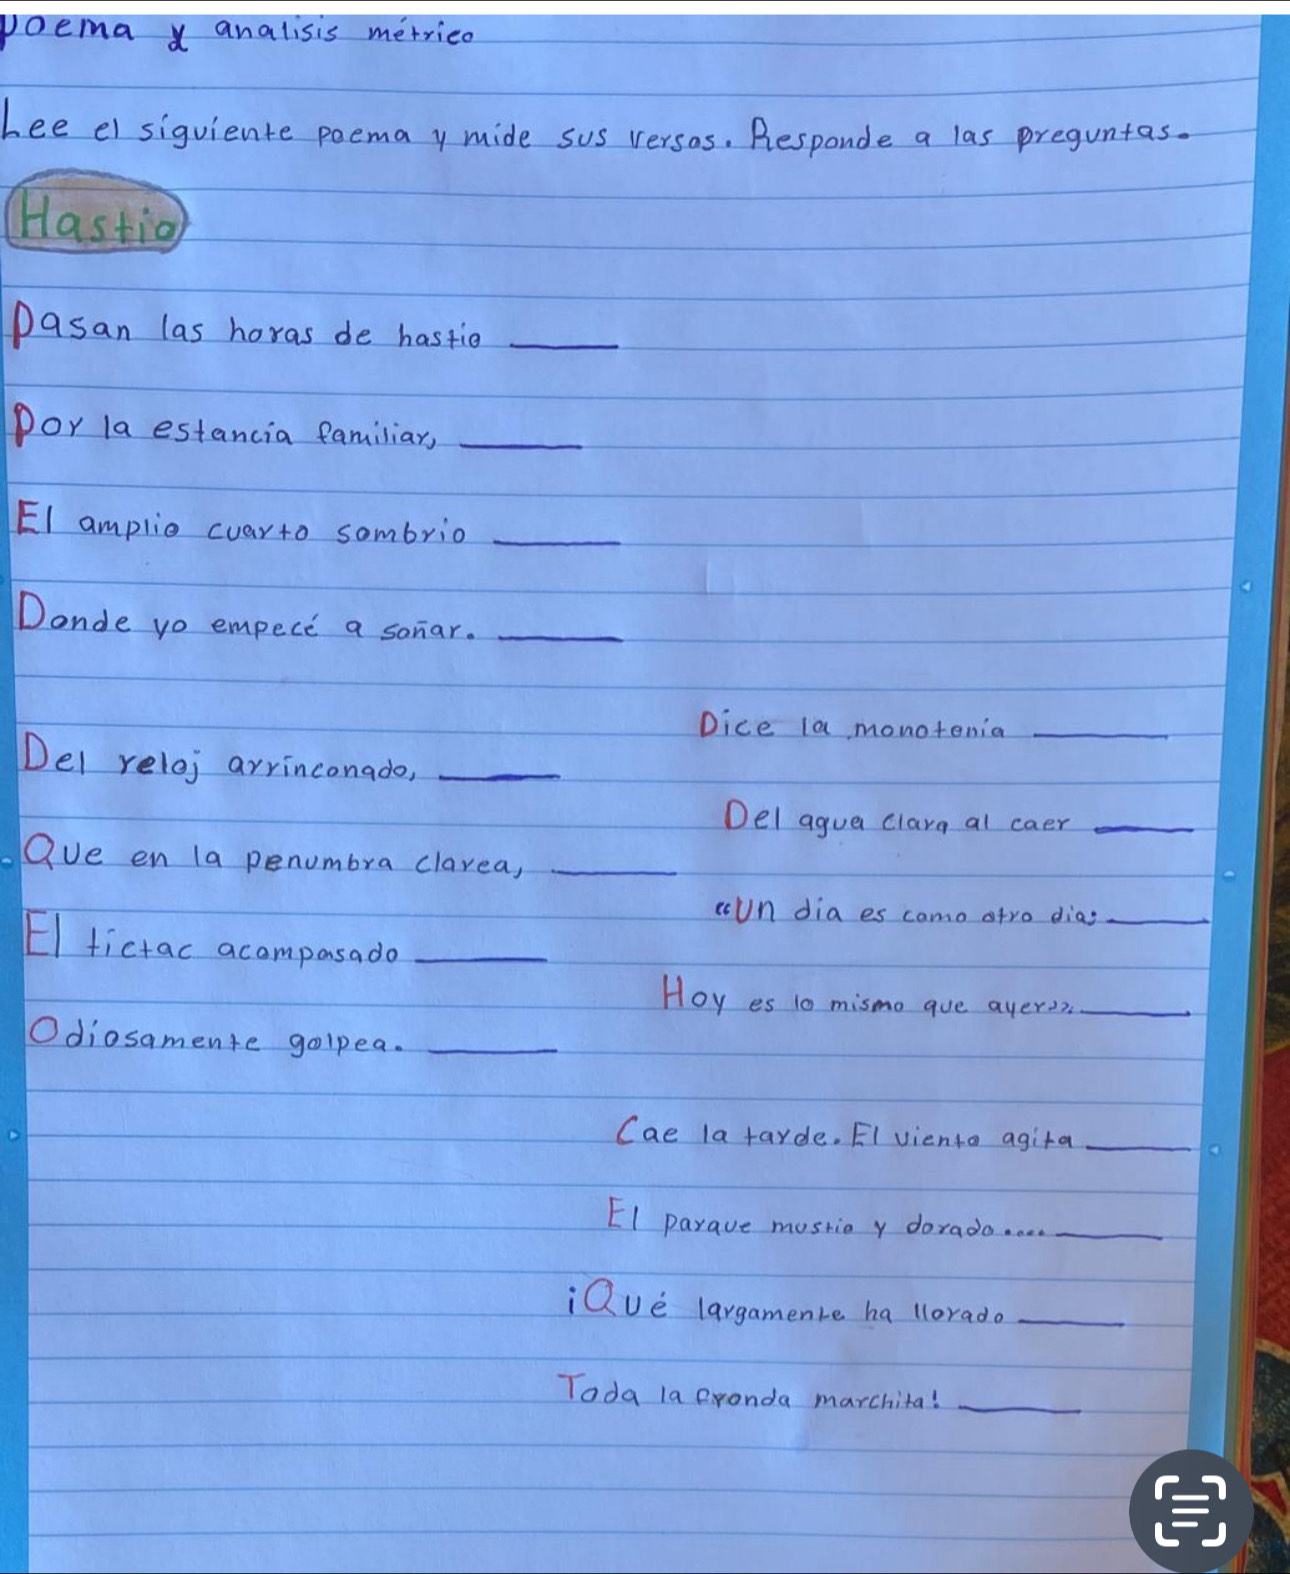 poema y analisis métrico
Lee el siguiente poema y mide sus versos. Responde a las preguntas.
Hastio
Pasan las horas de hastio
Por la estancia familiar,
El amplio cuarto sombrio
Donde yo empecé a soñar.
Del reloj arrinconado,
Que en la penumbra clarea,
El tictac acompasado
Odiosamente golpea.
Dice la monotonía
Del agua clara al caer
“Un día es como otro dia;
Hoy es lo mismo que ayer».
Cae la tarde. El viento agita
El parque mustio y dorado....
¡Qué largamente ha llorado
Toda la fronda marchita!